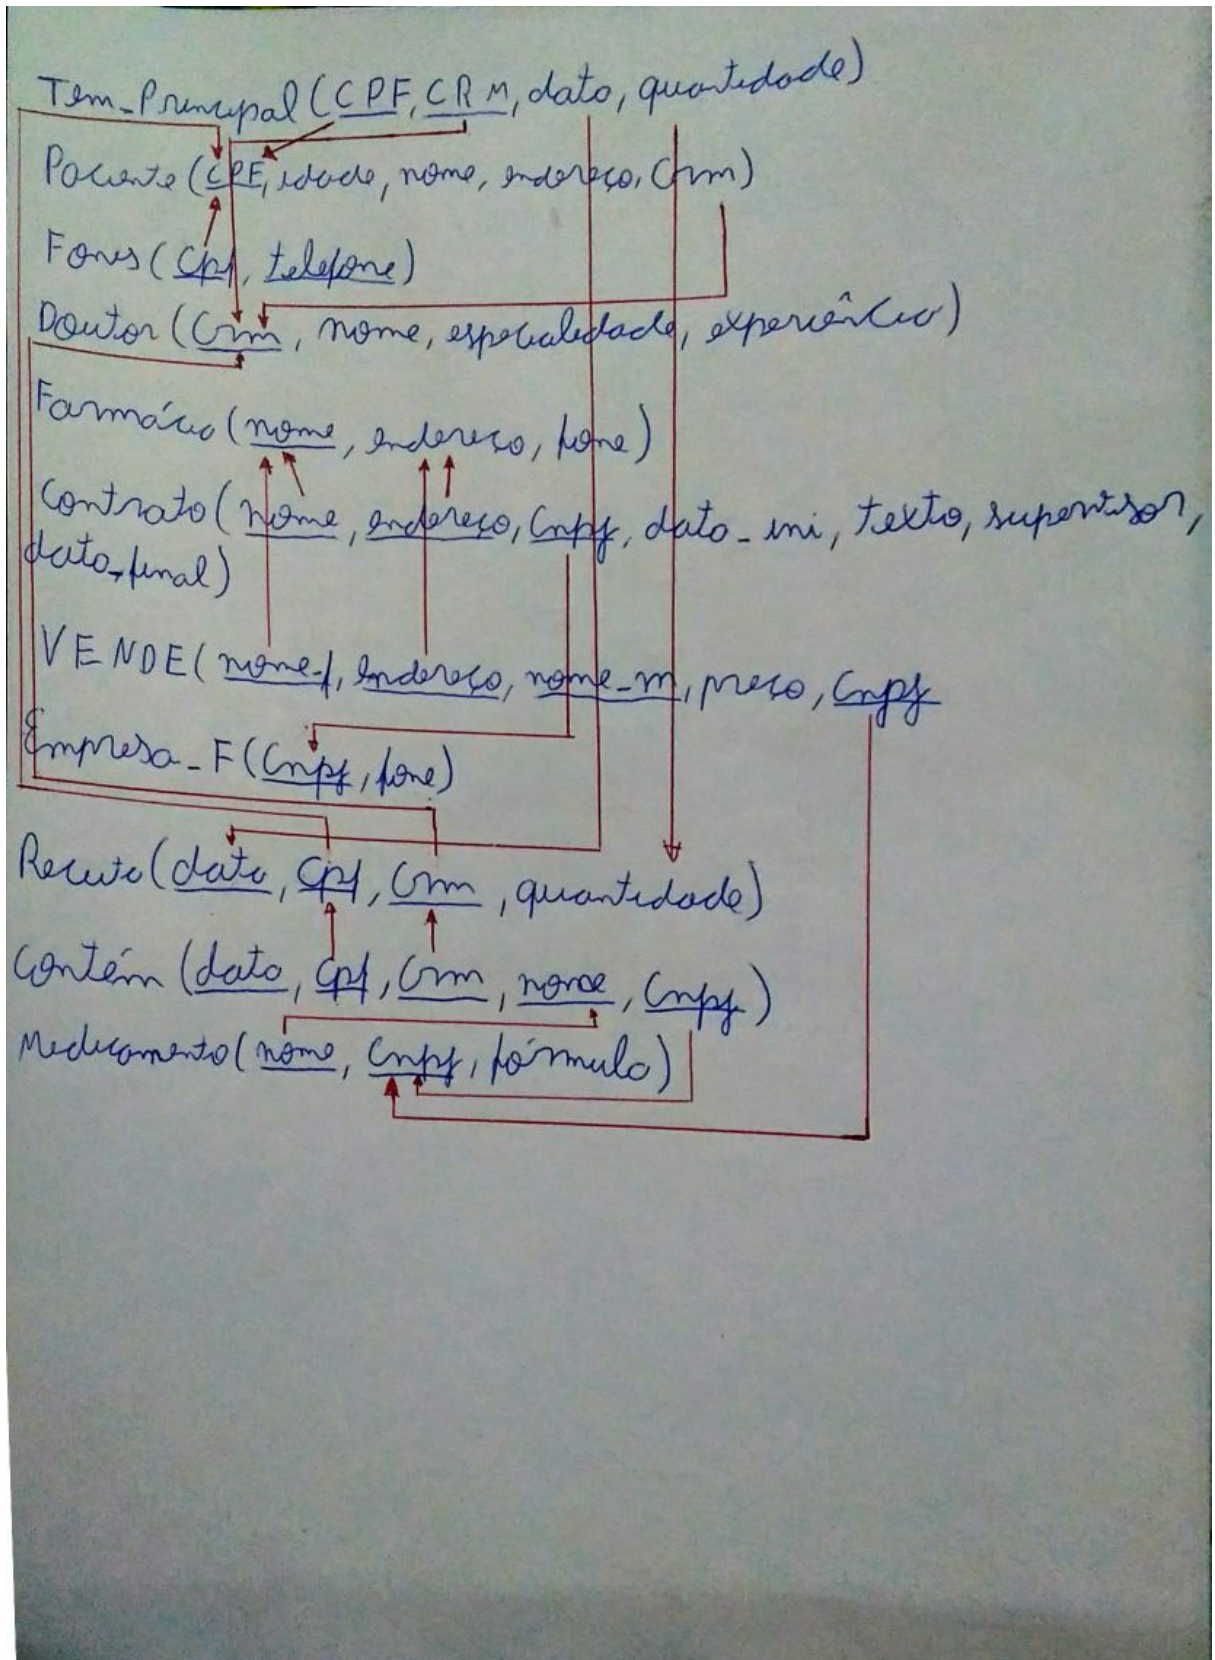 Tem_Principal(CPF, CRM, data, quantidade)
Paciente(CPF, idade, nome, endereço, Crm)
Fones(Cpf, telefone)
Doutor(Crm, nome, especialidade, experiência)
Farmácia(nome, endereço, fone)
Contrato(nome, endereço, Cnpj, data_ini, texto, supervisor,
data_final)
VENDE(nome_f, endereço, nome_m, preço, Cnpj
Empresa_F(Cnpj, fone)
Receita(data, Cpf, Crm, quantidade)
Contém(data, Cpf, Crm, nome, Cnpj)
Medicamento(nome, Cnpj, fórmula)